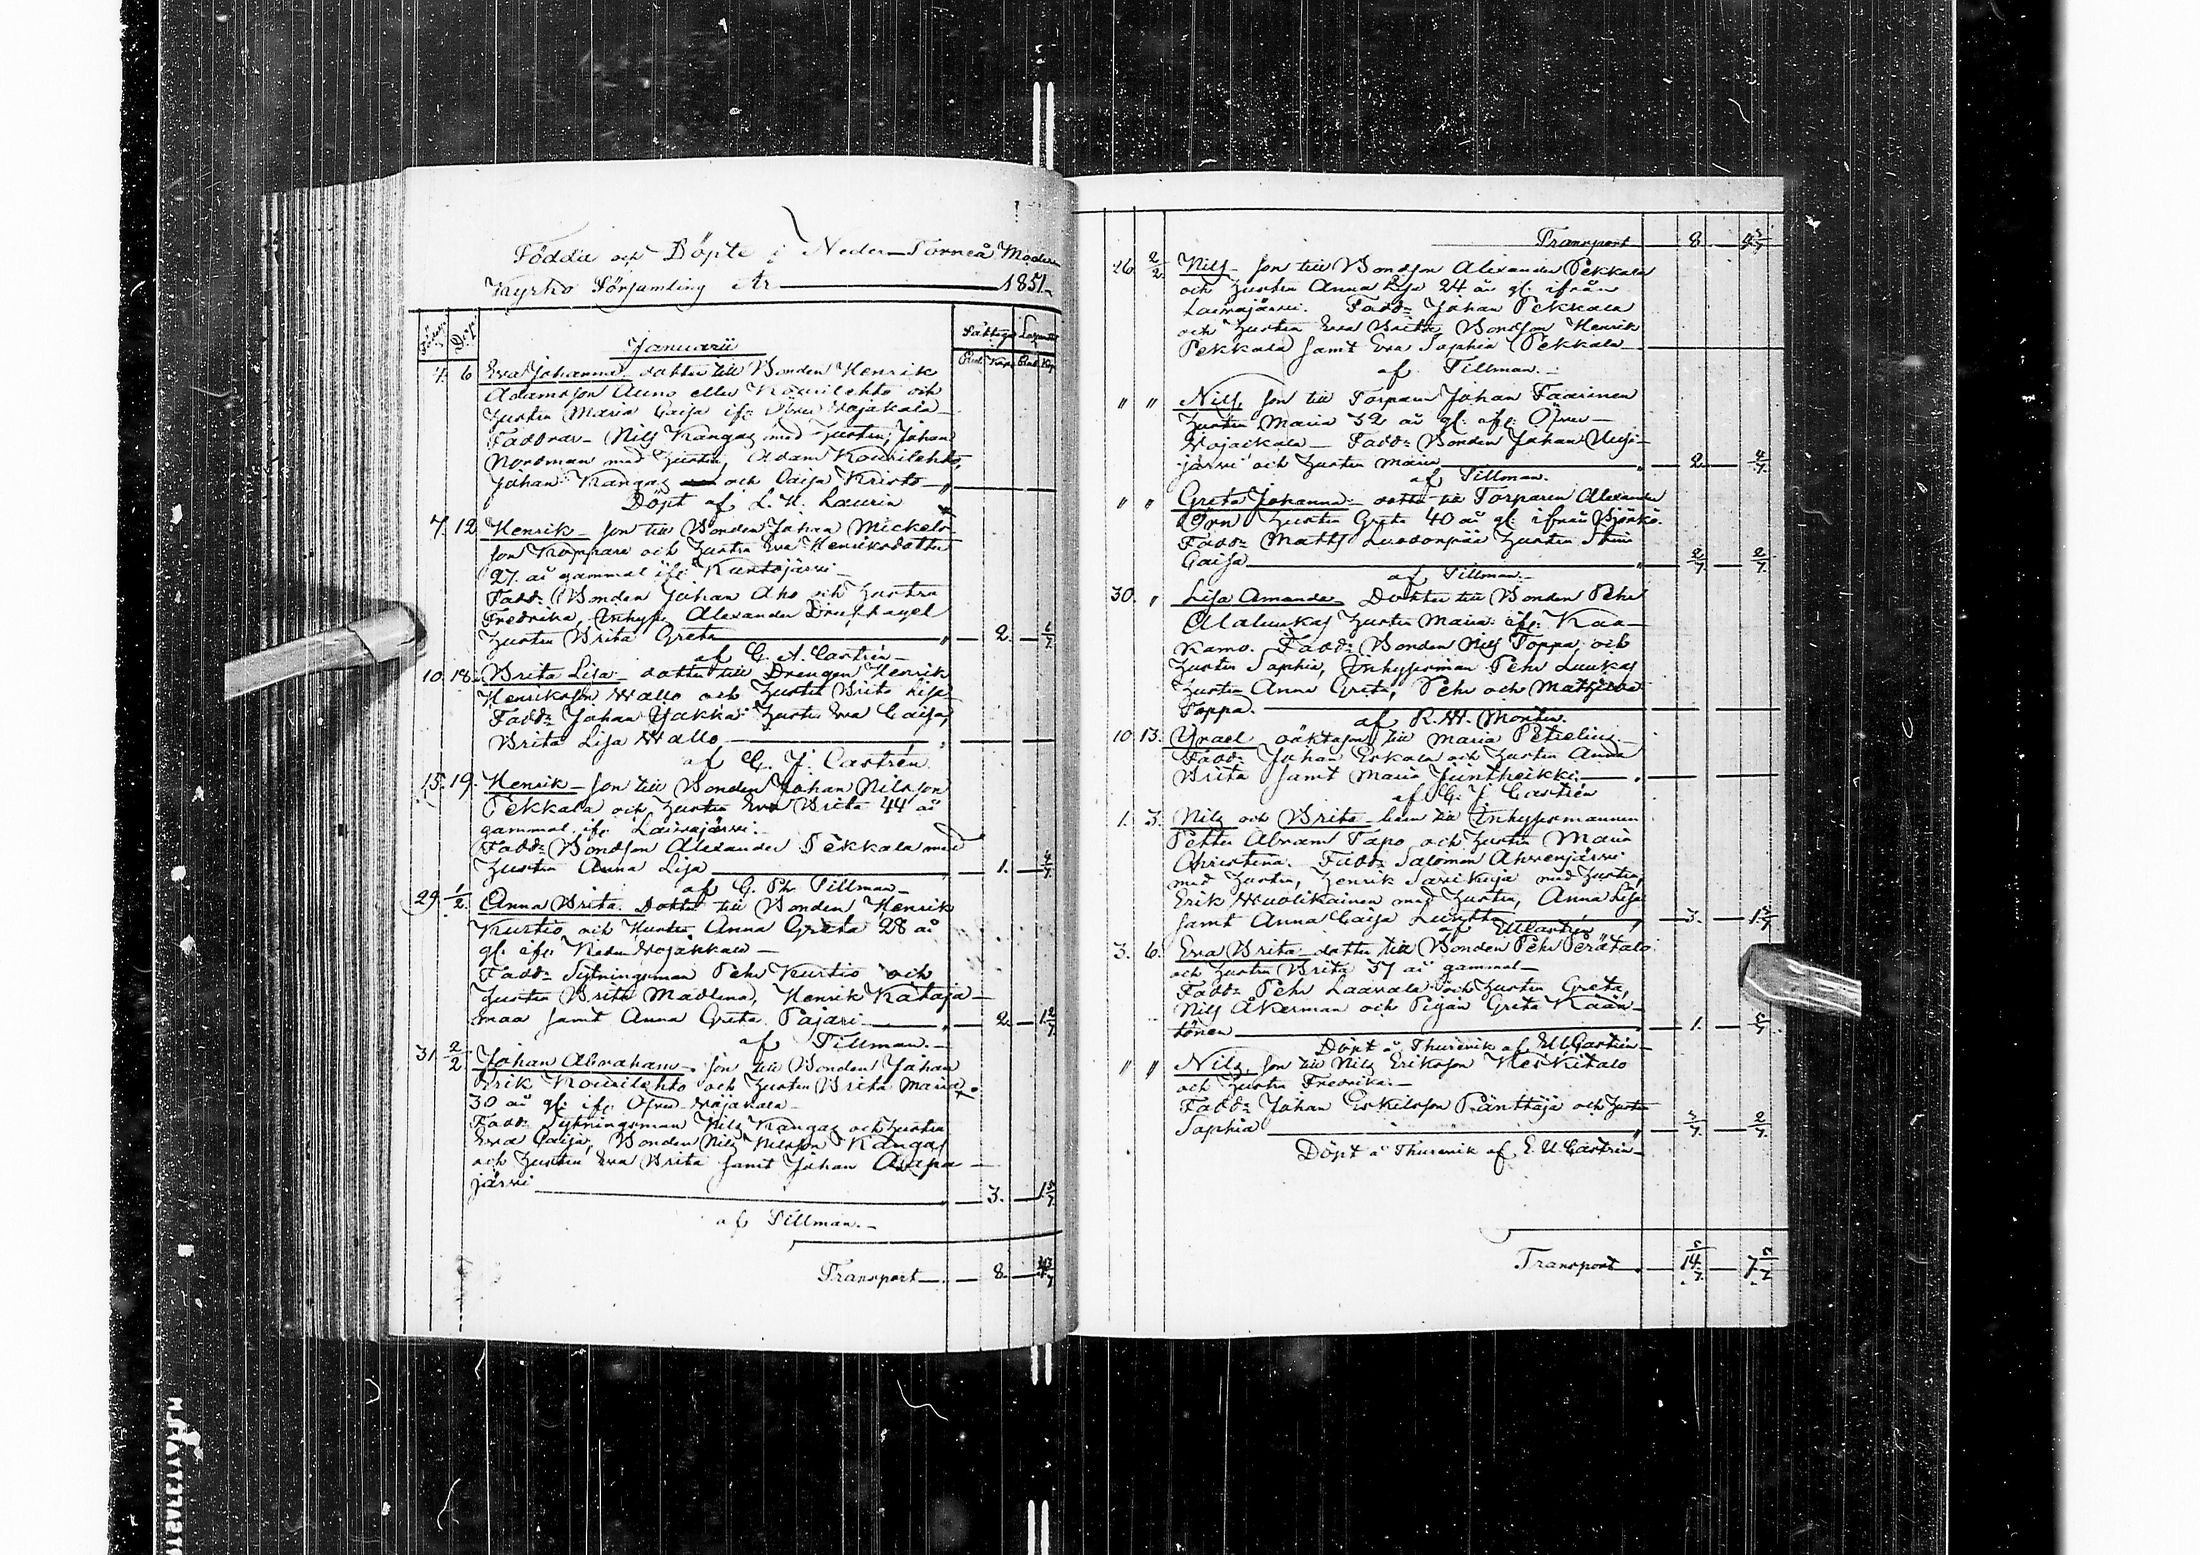 Födda och Döpte i Neder-Torneå Moder
Kyrko Församling År 1851.
Född Döpt Fattiga
Januarii
4. 6 Eva Johanna dotter till Bonden Henrik
Adamsson Auno eller Kourilehto och
hustru Maria Caisa ifr. Öfver Wojakala
Faddrar Nils Kangas med hustru, Johan
Nordman med hustru, Adam Kourilehto,
Johan Kangas och Caisa Kristo
Döpt af L. H. Laurin
7. 12 Henrik son till Bonden Johan Mickels
son Koppara och hustru Eva Henriksdotter
27 år gammal ifr. Kuntojärvi
Fadd: Bonden Johan Aho och hustru
Fredrika, Inhys. Alexander Drufhagel
hustru Brita Greta 2. 6/7
af G. A. Castrén
10. 18. Brita Lisa dotter till Drengen Henrik
Henriksson Wallo och hustru Brita Lisa
Fadd: Johan Yakka hustru Eva Caisa,
Brita Lisa Wallo
af G. J. Castrén.
15. 19. Henrik son till Bonden Johan Nilsson
Pekkala och hustru Eva Brita 44 år
gammal, ifr. Laivajärvi.
Fadd: Bondson Alexander Pekkala med
hustru Anna Lisa 1. 4/7
af G. Ph. Tillman
29. 1/2. Anna Brita. Dotter till Bonden Henrik
Kurtio och Hustru Anna Greta 28 år
gl. ifr. Neder Wojakkala
Fadd: Sytningsman Pehr Kurtio och
hustru Brita Madlena, Henrik Kataja
maa samt Anna Greta Pajari 2. 1 2/7
af Tillman.
31. 2/2 Johan Abraham. son till Bonden Johan
Erik Kourilehto och hustru Brita Maria
30 år gl: ifr. Öfver Wojakala
Fadd: Sytningsman Nils Kangas och hustru
Eva Caisa, Bonden Nils Nilsson Kangas
och hustru Eva Brita samt Johan Arpa
järvi 3. 1 5/7
af Tillman.
Transport 8.
Transport 8
26 2/2. Nils son till Bondson Alexander Pekkala
och hustru Anna Lisa 24 år gl. ifrån
Laivajärvi. Fadd: Johan Pekkala
och hustru Eva Brita Bondson Henrik
Pekkala samt Eva Sophia Pekkala
af Tillman.
" " Nils, son till Torparen Johan Faarinen
hustru Maria 32 år gl. ifr. Öfver
Wojackala Fadd: Bonden Johan
järvi och hustru Maria 2. 4/7.
af Tillman.
" " Greta Johanna dotter till Torparen Alexander
Örn hustru Greta 40 år gl: ifrån Björkö.
Fadd: Matts hustru
Caisa 2/7. 2/7.
af Tillman.
30. " Lisa Amanda Dotter till Bonden Pehr
hustru Maria ifr. Kaa
kamo. Fadd: Bonden Nils Toppa och
hustru Sophia, Inhysesman Pehr Luukas
hustru Anna Greta, Pehr och Mathilda
Toppa.
af R. W. Montin.
10. 13. Ysrael oäkta son till Maria Petrelius
Fadd: Johan Erkala och hustru Anna
Brita samt Maria Juntheikki
af G. J. Castrén
1. 3. Nils och Brita barn till Inhysesmannen
Petter Abram Tapo och hustru Maria
Christina. Fadd: Salomon Ahvenjärvi
med hustru, Henrik Sarikuja med hustru,
Erik Wuolikainen med hustru, Anna Lisa
samt Anna Caisa 3. 1 5/7
af E U Castrén
3. 6. Eva Brita dotter till Bonden Pehr Perätalo
och hustru Brita 37 år gammal
Fadd: Pehr Laavala och hustru Greta,
Nils Åkerman och Pigan Greta Kään
tönen 1. 5/7
Döpt i Thurevik af E U Castrén
" " Nils, son till Nils Eriksson Keskitalo
och hustru Fredrika.
Fadd: Johan Eskilsson Pänttäjä och hustru
Sophia 5/7. 2/7.
Döpt i Thurevik af E. U. Castrén
Transport 14 5/7 7 5/7